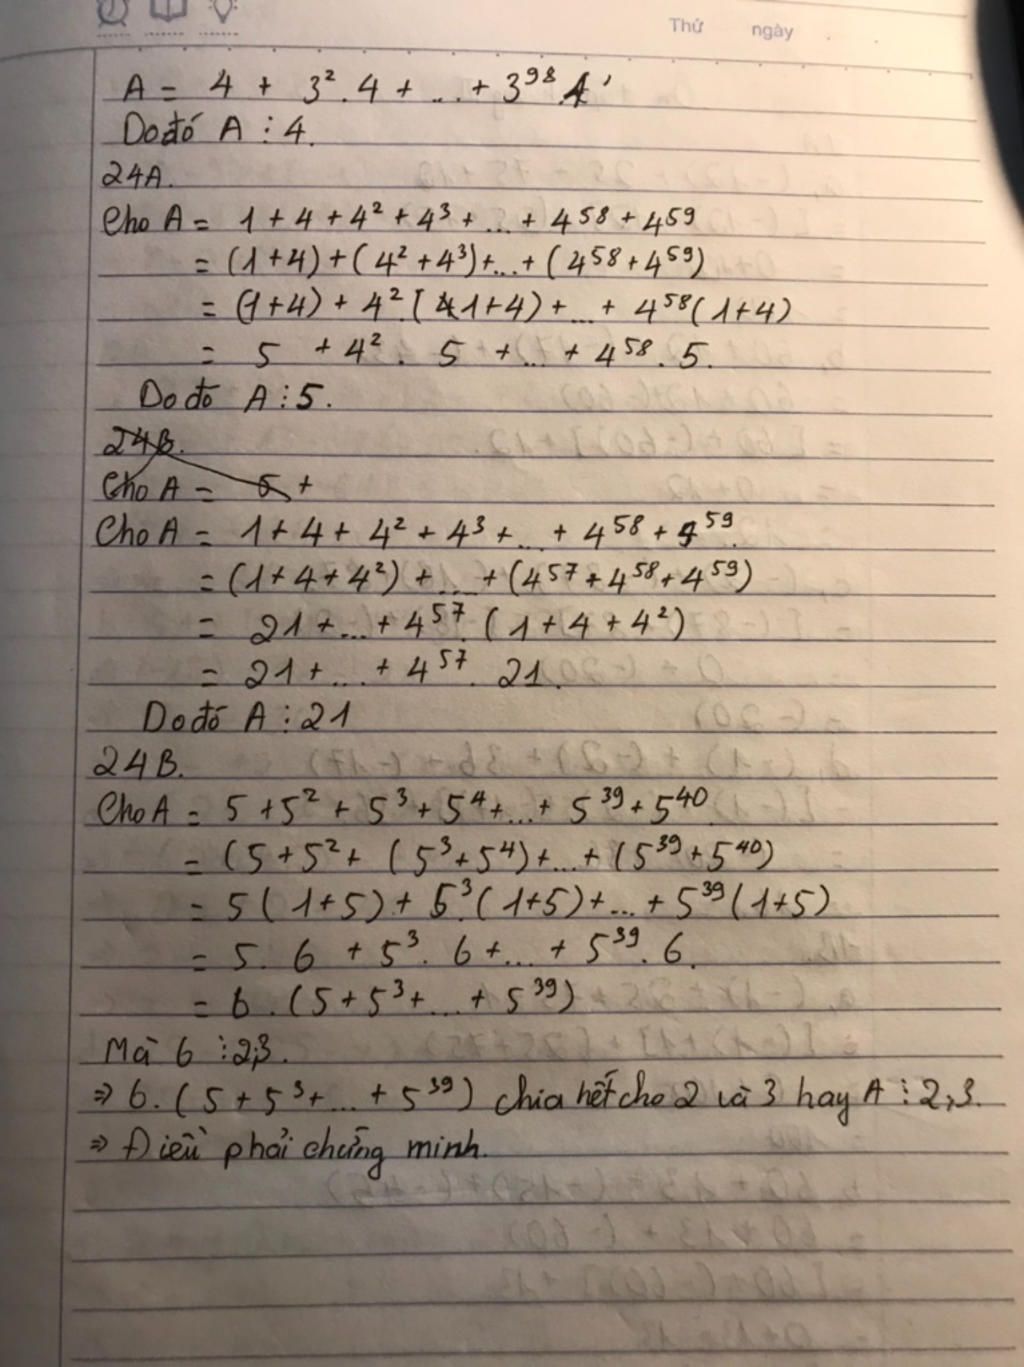 Thứ ngày
A = 4 + 3². 4 + ... + 3⁹⁸.4
Do đó A ⋮ 4.
24A.
Cho A = 1 + 4 + 4² + 4³ + ... + 4⁵⁸ + 4⁵⁹
= (1+4) + (4² + 4³) + ... + (4⁵⁸ + 4⁵⁹)
= (1+4) + 4². (1+4) + ... + 4⁵⁸(1+4)
= 5 + 4². 5 + ... + 4⁵⁸. 5.
Do đó A ⋮ 5.
24B.
Cho A = 5 +
Cho A = 1 + 4 + 4² + 4³ + ... + 4⁵⁸ + 4⁵⁹.
= (1 + 4 + 4²) + ... + (4⁵⁷ + 4⁵⁸ + 4⁵⁹)
= 21 + ... + 4⁵⁷. (1 + 4 + 4²)
= 21 + ... + 4⁵⁷. 21.
Do đó A ⋮ 21
24B.
Cho A = 5 + 5² + 5³ + 5⁴ + ... + 5³⁹ + 5⁴⁰.
= (5 + 5² + (5³ + 5⁴) + ... + (5³⁹ + 5⁴⁰)
= 5(1+5) + 5³.(1+5) + ... + 5³⁹(1+5)
= 5. 6 + 5³. 6 + ... + 5³⁹. 6.
= 6 .(5 + 5³ + ... + 5³⁹)
Mà 6 ⋮ 2;3.
⇒ 6. (5 + 5³ + ... + 5³⁹) chia hết cho 2 và 3 hay A ⋮ 2,3.
⇒ Điều phải chứng minh.